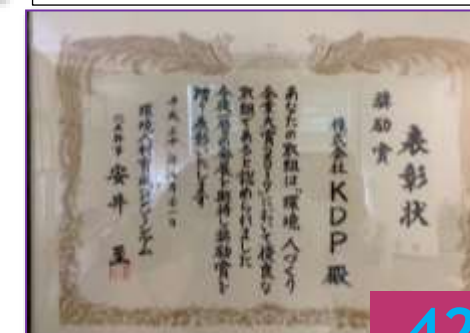 表彰状
奨励賞
株式会社 KDP 殿
あなたの取組は「環境 人づくり
企業大賞2017」において優良な
取組であると認められました
今後一層の発展を期待し奨励賞を
贈り表彰いたします
環境人材育成コンソーシアム
安井 至
42